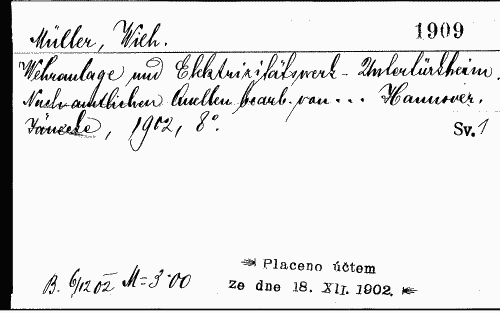 Müller, Wilh. 1909
Wehranlage und Elektrizitätswerk - Untertürkheim.
Nach amtlichen Quellen bearb. von... Hannover,
Jänecke, 1902, 8°.
Sv. 1
Placeno účtem
B. 6/12 02 M=3·00
ze dne 18. XII. 1902.